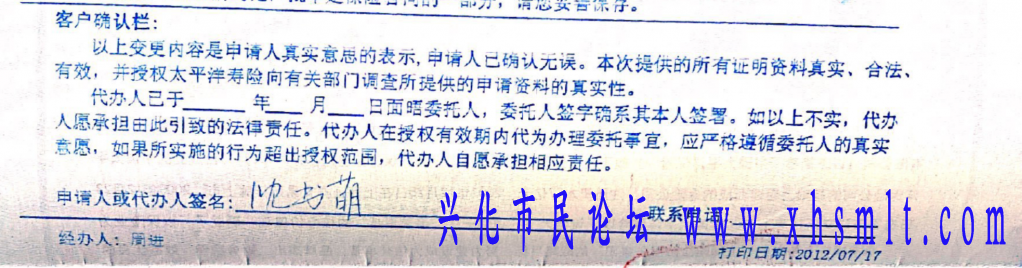 部分，请您妥善保存。
客户确认栏：
以上变更内容是申请人真实意思的表示,申请人已确认无误。本次提供的所有证明资料真实、合法、
有效，并授权太平洋寿险向有关部门调查所提供的申请资料的真实性。
代办人已于______年___月___日面晤委托人，委托人签字确系其本人签署。如以上不实，代办
人愿承担由此引致的法律责任。代办人在授权有效期内代为办理委托事宜，应严格遵循委托人的真实
意愿，如果所实施的行为超出授权范围，代办人自愿承担相应责任。
申请人或代办人签名：沈 萌 联系电话
兴化市民论坛 www.xhsmlt.com
经办人：周进
打印日期:2012/07/17